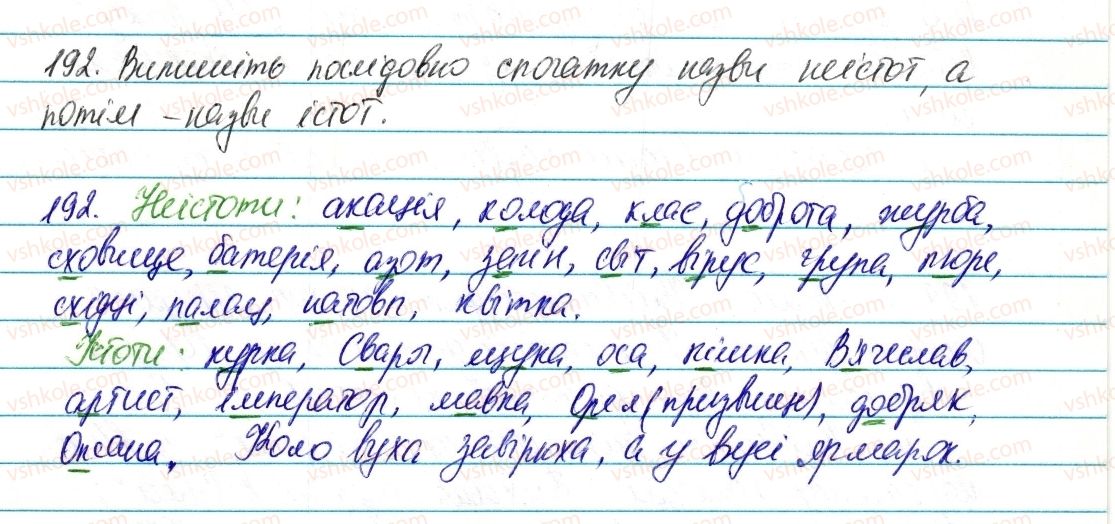 192. Випишіть послідовно спочатку назви неістот, а
потім – назви істот.
192. Неістоти: акація, колода, клас, доброта, журба,
сховище, батерія, азот, загін, світ, вірус, група, пюре,
східці, палац, натовп, квітка.
Істоти: курка, Сварог, щука, оса, кішка, В'ячеслав,
артист, імператор, мавка, Орел (прізвище), добряк,
Оксана. Коло вуха завірюха, а у вусі ярмарок.